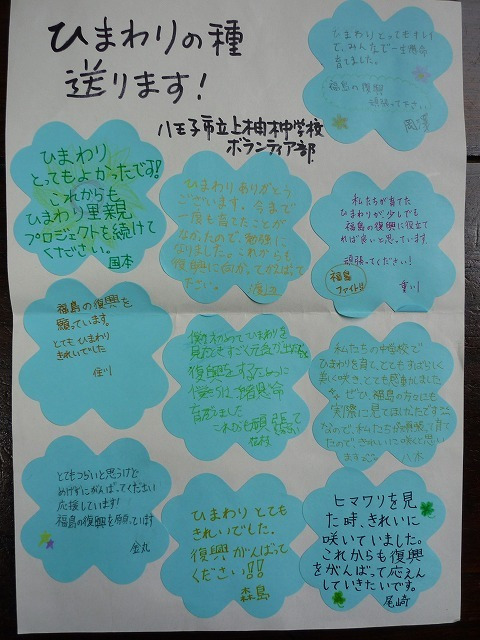 ひまわりの種
送ります!
八王子市立上柚木中学校
ボランティア部
ひまわりとってもキレイ
で、みんなで一生懸命
育てました。
福島の復興
頑張って下さい
ひまわり
とってもよかったです!!
これからも
ひまわり里親
プロジェクトを続けて
ください。
国本
ひまわりありがとう
ございます。今まで
一度も育てたことが
なかったので、勉強に
なりました。これからも
復興に向かってがんばって
ください。
私たちが育てた
ひまわりが、少しでも
福島の復興に役立て
れば良いと思っています
頑張ってください!
福島
ファイト!!
福島の復興を
願っています。
とてもひまわり
きれいでした
佳川
僕は初めてひまわりを
見たときすごく元気が出ました
復興をするために
僕たちは一生懸命
育てました
これからも頑張って
ください
私たちの中学校で
ひまわりを育て、とてもすばらしく
美しく咲き、とても感動しました
ぜひ、福島の方々にも
実際に見てほしかったです
なので、私たちが頑張って育て
たので、きれいに咲くと思い
ます
八木
とてもつらいと思うけど
めげずにがんばってください
応援しています!
福島の復興を願っています
金丸
ひまわりとても
きれいでした.
復興がんばって
ください!!
森島
ヒマワリを見
た時、きれいに
咲いていました。
これからも復興
をがんばって応えん
していきたいです。
尾崎